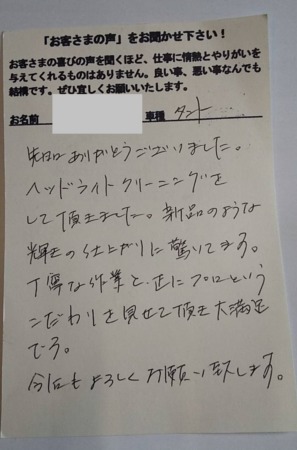 「お客さまの声」をお聞かせ下さい！
お客さまの喜びの声を聞くほど、仕事に情熱とやりがいを
与えてくれるものはありません。良い事、悪い事なんでも
結構です。ぜひ宜しくお願いいたします。
お名前 車種 タント
先日はありがとうございました。
ヘッドライトクリーニングを
して頂きました。新品のような
輝きの仕上がりに驚いてます。
丁寧な作業と、正にプロという
こだわりを見せて頂き大満足
です。
今后もよろしくお願い致します。